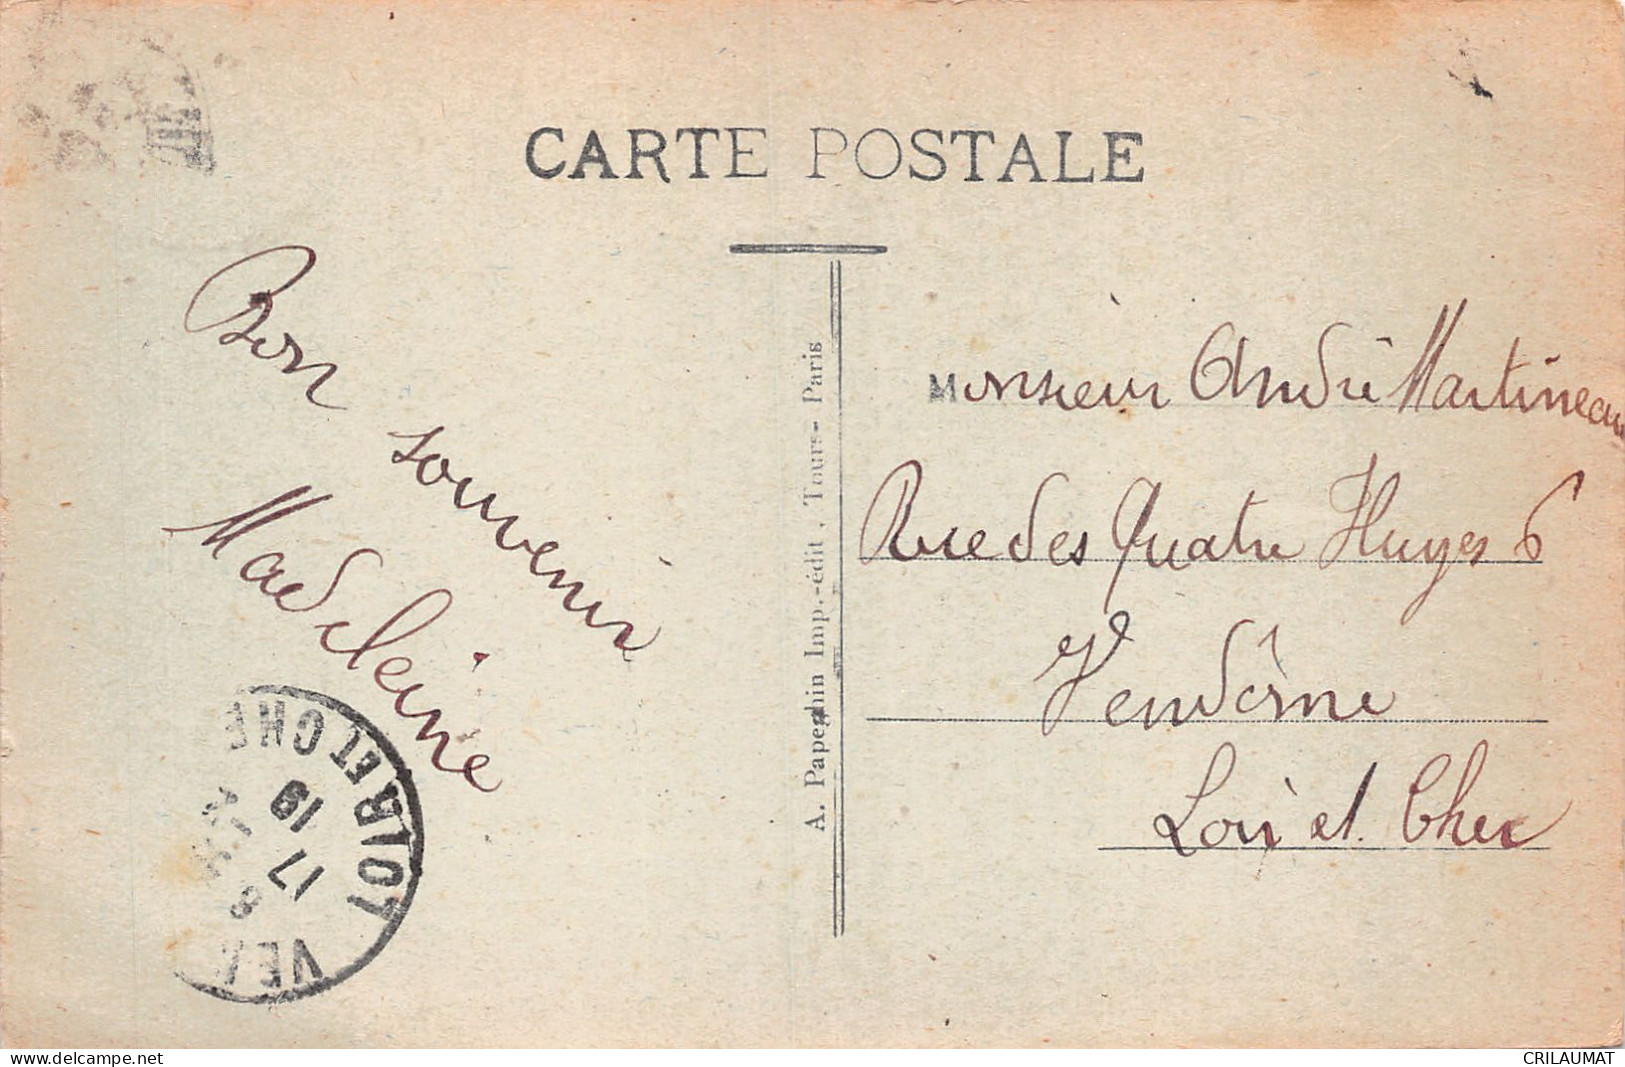 CARTE POSTALE
Bon
souvenir
Madeleine
A. Papeghin Imp.-édit. Tours- Paris
Monsieur André Martineau
Rue des Quatre Huyes 6
Vendôme
Loir et Cher
LOIR ET CHER
19
17
8
www.delcampe.net
CRILAUMAT